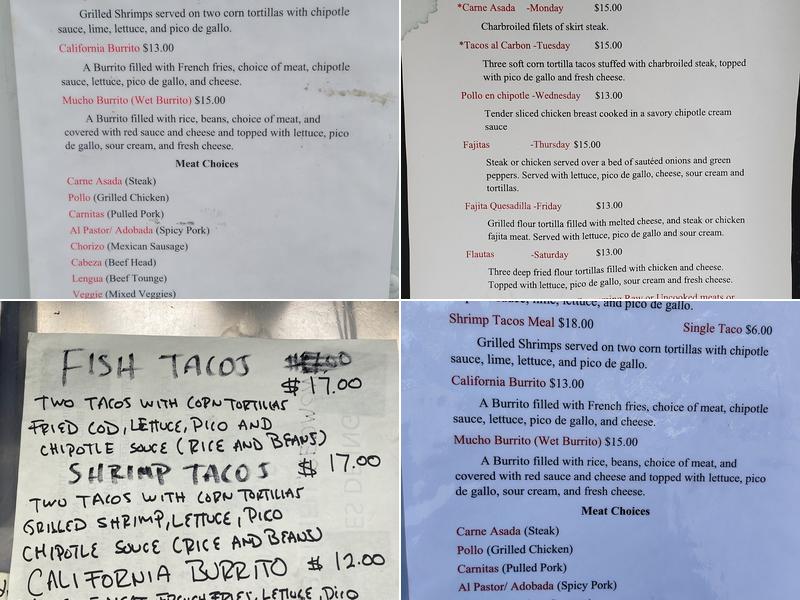 Grilled Shrimps served on two corn tortillas with chipotle
sauce, lime, lettuce, and pico de gallo.
California Burrito $13.00
A Burrito filled with French fries, choice of meat, chipotle
sauce, lettuce, pico de gallo, and cheese.
Mucho Burrito (Wet Burrito) $15.00
A Burrito filled with rice, beans, choice of meat, and
covered with red sauce and cheese and topped with lettuce, pico
de gallo, sour cream, and fresh cheese.
Meat Choices
Carne Asada (Steak)
Pollo (Grilled Chicken)
Carnitas (Pulled Pork)
Al Pastor/ Adobada (Spicy Pork)
Chorizo (Mexican Sausage)
Cabeza (Beef Head)
Lengua (Beef Tounge)
Veggie (Mixed Veggies)
*Carne Asada -Monday $15.00
Charbroiled filets of skirt steak.
*Tacos al Carbon -Tuesday $15.00
Three soft corn tortilla tacos stuffed with charbroiled steak, topped
with pico de gallo and fresh cheese.
Pollo en chipotle -Wednesday $13.00
Tender sliced chicken breast cooked in a savory chipotle cream
sauce
Fajitas -Thursday $15.00
Steak or chicken served over a bed of sautéed onions and green
peppers. Served with lettuce, pico de gallo, cheese, sour cream and
tortillas.
Fajita Quesadilla -Friday $13.00
Grilled flour tortilla filled with melted cheese, and steak or chicken
fajita meat. Served with lettuce, pico de gallo and sour cream.
Flautas -Saturday $13.00
Three deep fried flour tortillas filled with chicken and cheese.
Topped with lettuce, pico de gallo, sour cream and fresh cheese.
Raw or Uncooked meats or
FISH TACOS
$17.00
TWO TACOS WITH CORN TORTILLAS
FRIED COD, LETTUCE, PICO AND
CHIPOTLE SOUCE (RICE AND BEANS)
SHRIMP TACOS $17.00
TWO TACOS WITH CORN TORTILLAS
GRILLED SHRIMP, LETTUCE, PICO
CHIPOTLE SOUCE (RICE AND BEANS)
CALIFORNIA BURRITO $12.00
FRENCH FRIES, LETTUCE, PICO
sauce, lime, lettuce, and pico de gallo.
Shrimp Tacos Meal $18.00 Single Taco $6.00
Grilled Shrimps served on two corn tortillas with chipotle
sauce, lime, lettuce, and pico de gallo.
California Burrito $13.00
A Burrito filled with French fries, choice of meat, chipotle
sauce, lettuce, pico de gallo, and cheese.
Mucho Burrito (Wet Burrito) $15.00
A Burrito filled with rice, beans, choice of meat, and
covered with red sauce and cheese and topped with lettuce, pico
de gallo, sour cream, and fresh cheese.
Meat Choices
Carne Asada (Steak)
Pollo (Grilled Chicken)
Carnitas (Pulled Pork)
Al Pastor/ Adobada (Spicy Pork)